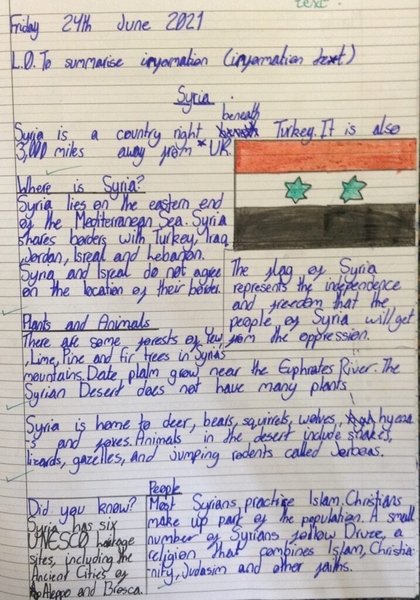 text.
Friday 24th June 2021
L.O. To summarise information (information text)
Syria
beneath
Syria is a country right Turkey. It is also
3,000 miles away from UK.
Where is Syria?
Syria lies on the eastern end
of the Mediterranean Sea. Syria
shares borders with Turkey, Iraq
Jordan, Isreal and Lebanon.
Syria and Isreal do not agree
on the location of their border.
The flag of Syria
represents the independence
and freedom that the
people of Syria will get
from the oppression.
Plants and Animals
There are some forests of Yew
, Lime, Pine and Fir trees in Syria's
mountains. Date plalm grow near the Euphrates River. The
Syrian Desert does not have many plants
Syria is home to deer, bears, squirrels, wolves, hyena
s and foxes. Animals in the desert include snakes,
lizards, gazelles, and jumping rodents called Jerboas.
Did you know?
Syria has six
UNESCO heritage
sites, including the
Ancient Cities of
Aleppo and Bosca.
People
Most Syrians, practise Islam. Christians
make up part of the population. A small
number of Syrians follow Druze, a
religion that combines Islam, Christia-
nity, Judasim and other faiths.